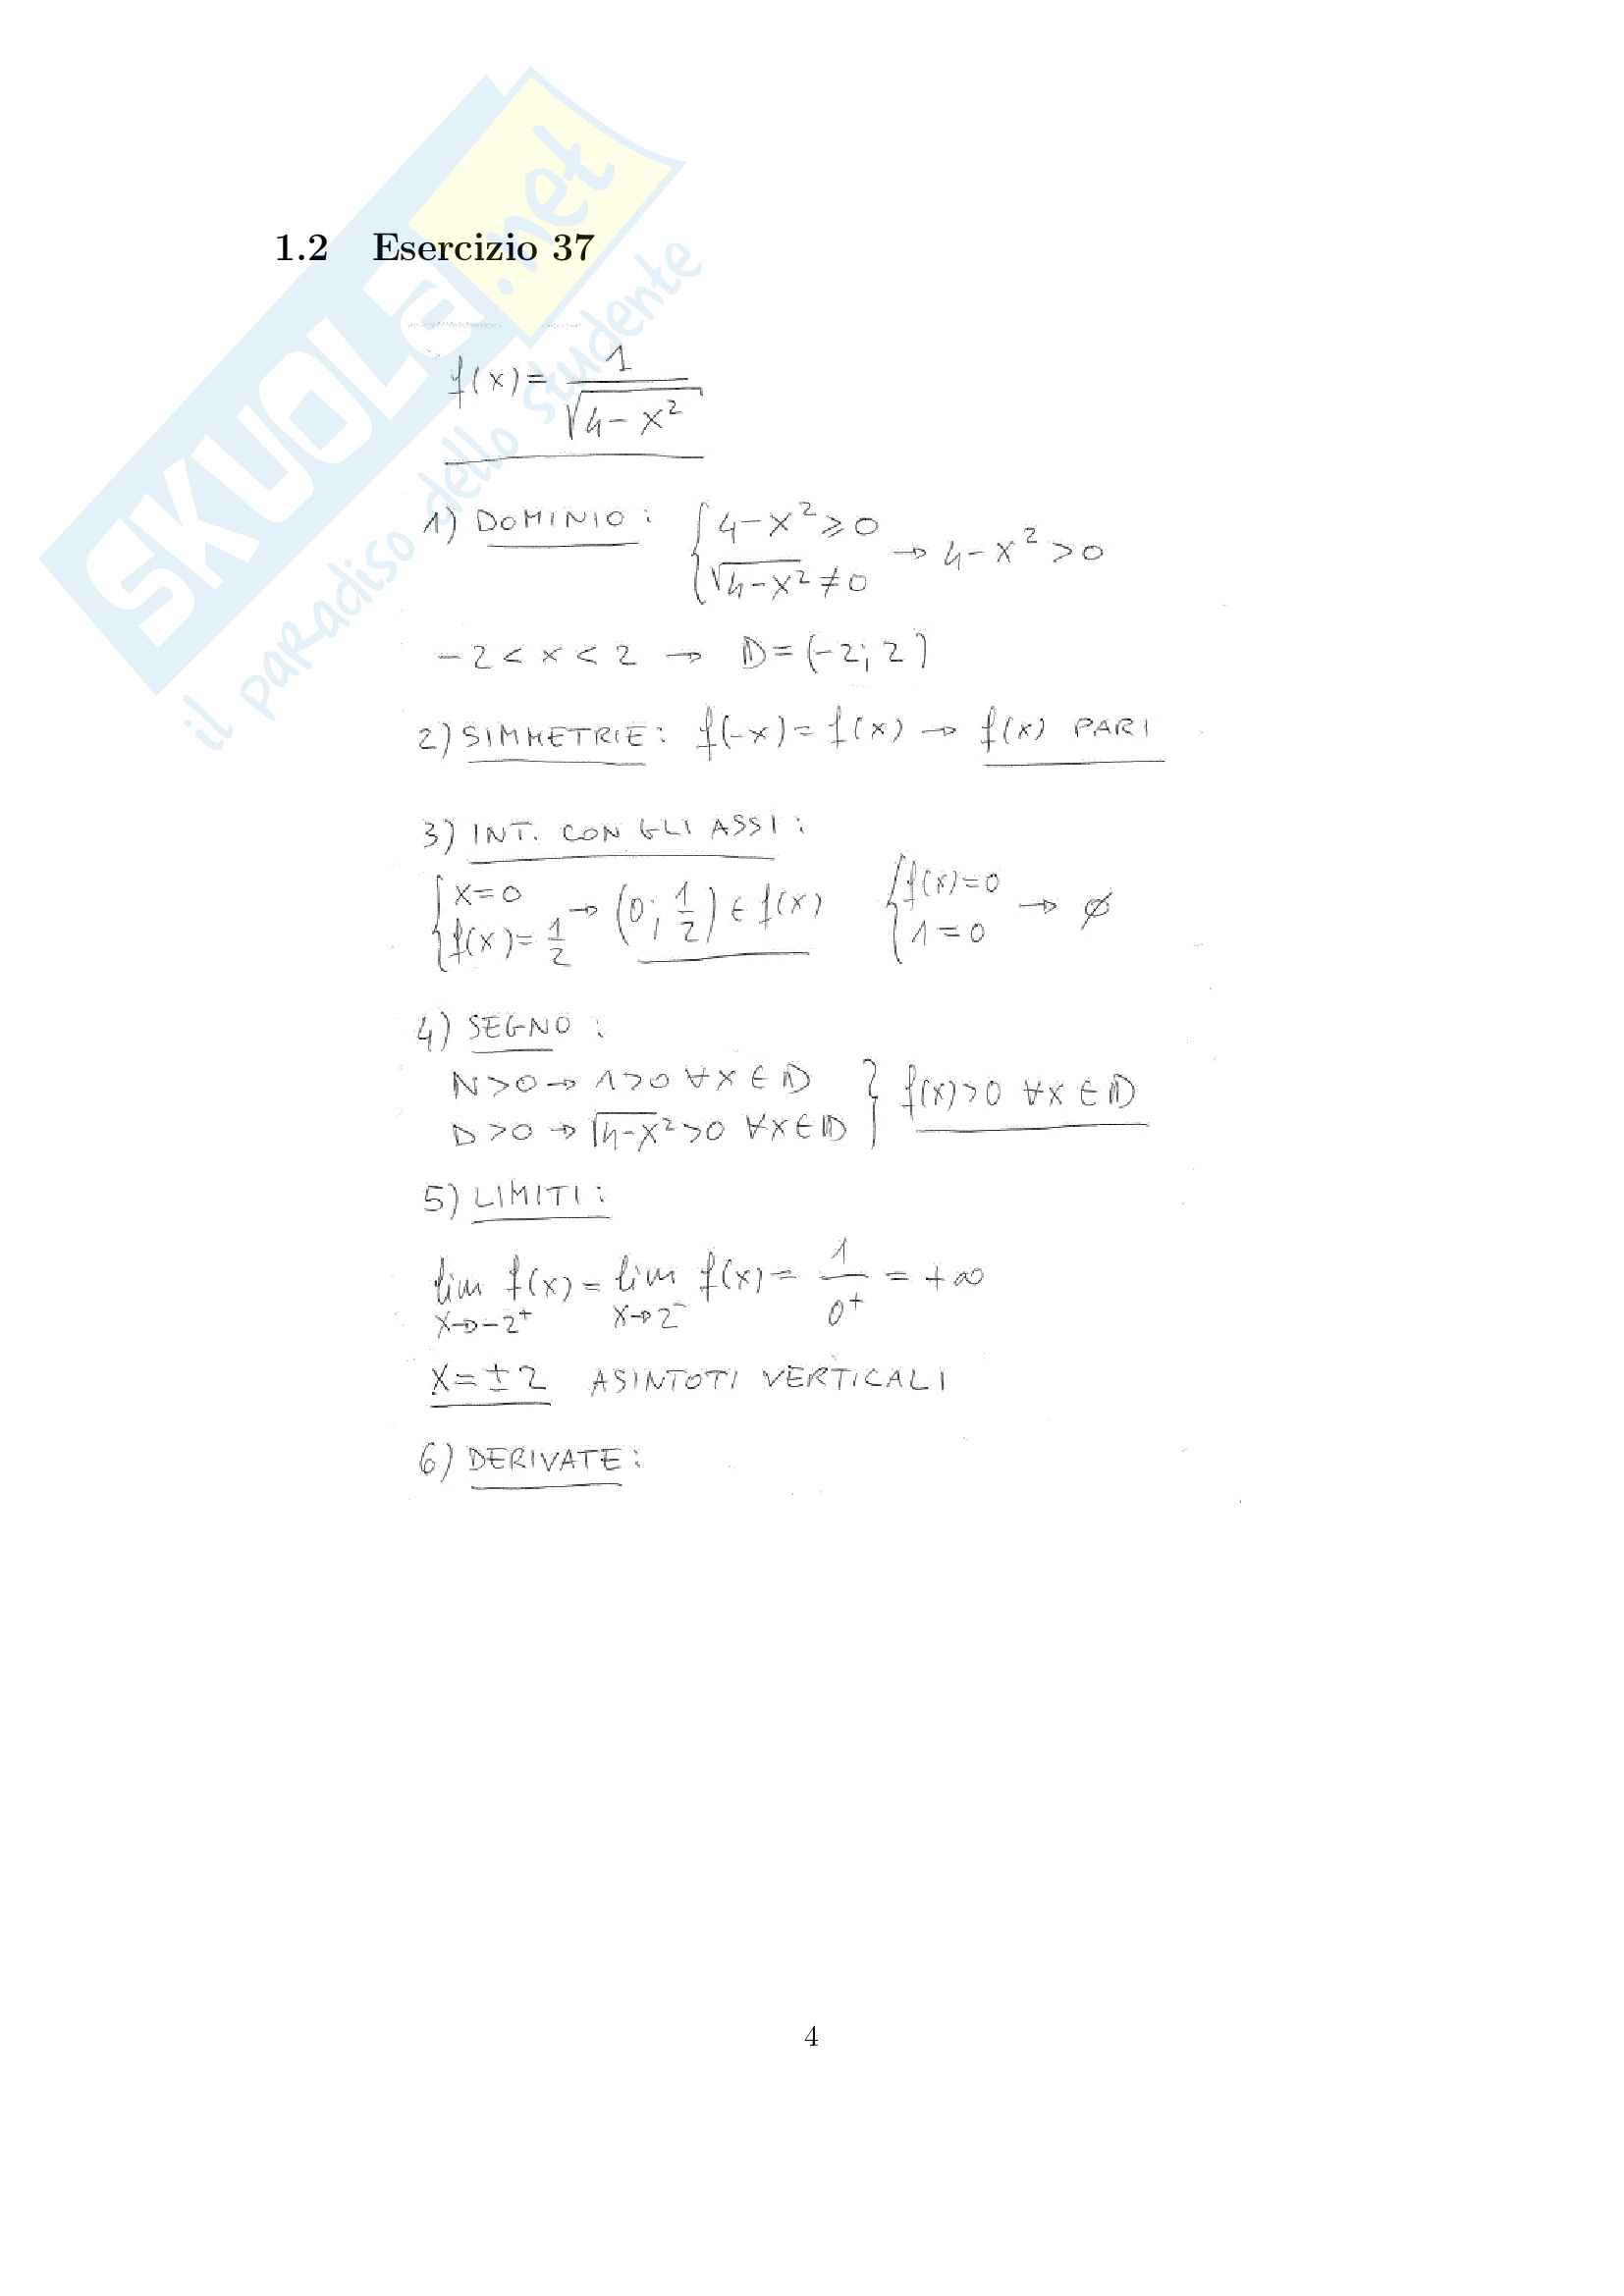 SKUOLa.net
il paradiso dello studente
1.2 Esercizio 37
f(x) = 1/√(4-x²)
1) DOMINIO: { 4-x² ≥ 0 ; √(4-x²) ≠ 0 → 4-x² > 0
-2 < x < 2 → D = (-2; 2)
2) SIMMETRIE: f(-x) = f(x) → f(x) PARI
3) INT. CON GLI ASSI:
{ x=0 ; f(x) = 1/2 → (0; 1/2) ∈ f(x) { f(x)=0 ; 1=0 → ∅
4) SEGNO:
N>0 → 1>0 ∀x ∈ D
D>0 → √(4-x²) >0 ∀x∈D } f(x)>0 ∀x ∈ D
5) LIMITI:
lim x→-2⁺ f(x) = lim x→2⁻ f(x) = 1/0⁺ = +∞
x=±2 ASINTOTI VERTICALI
6) DERIVATE:
4